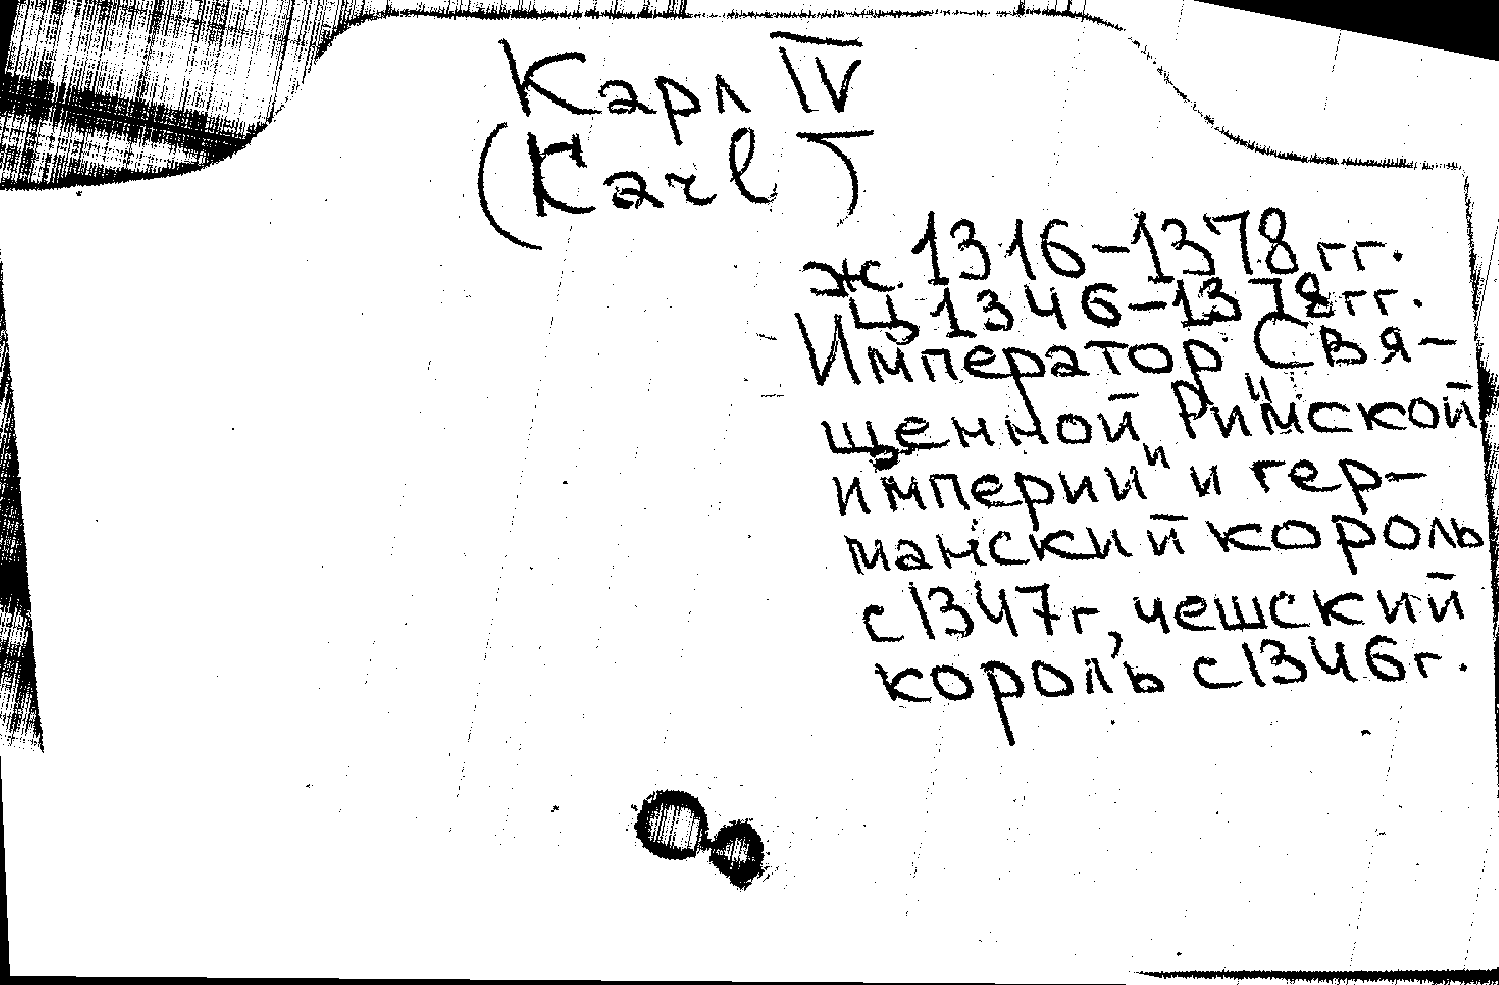 Карл IV
(Karl)
ж. 1316-1378 гг.
ц. 1346-1378 гг.
Император Свя-
щенной "Римской
империи" и гер-
манский король
с 1347 г, чешский
король с 1346 г.